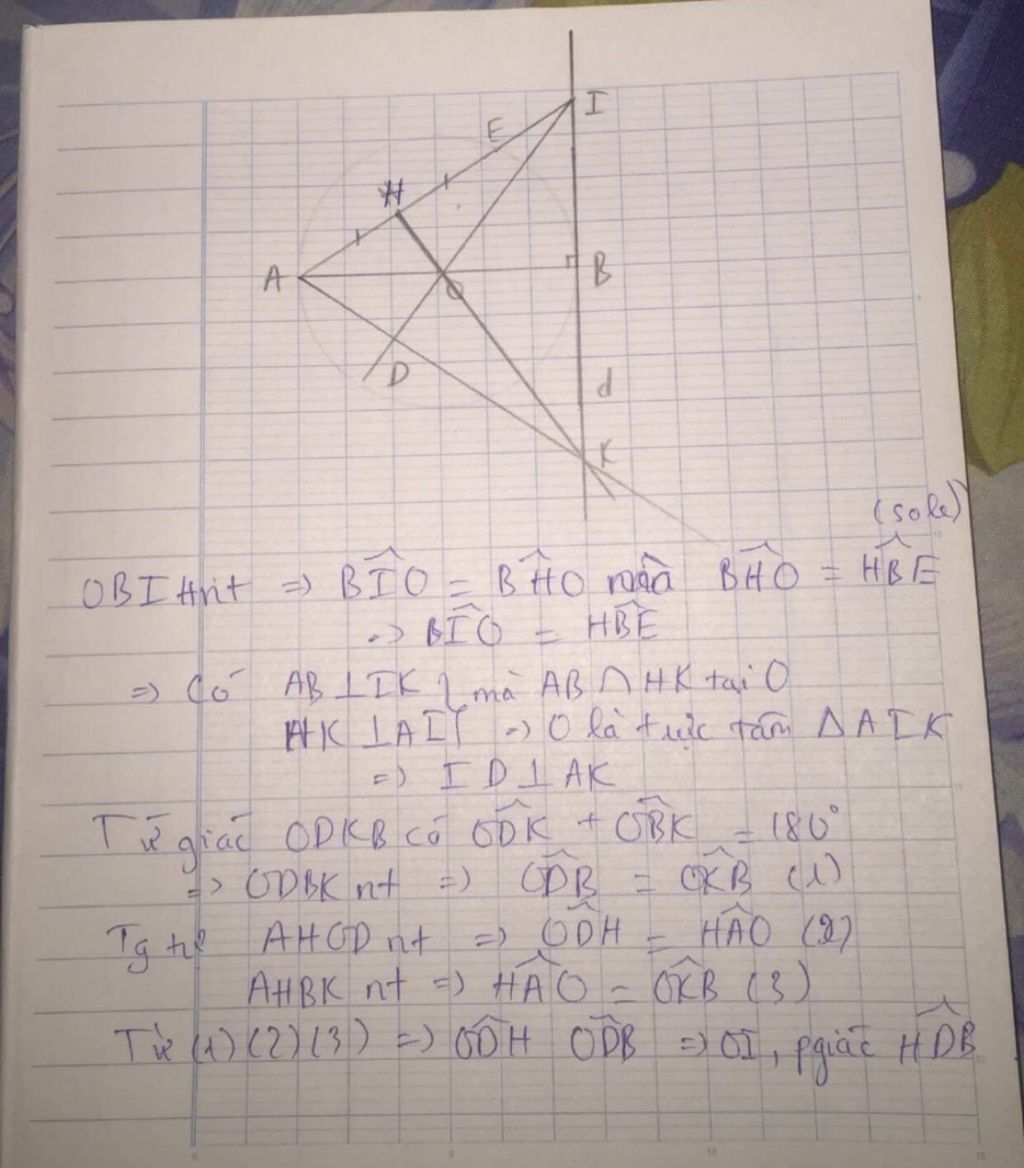 I
E
H
A
B
O
D
d
K
(sole)
OBIHnt => BÎO = BĤO mà BĤO = HB̂E
=> BÎO = HB̂E
=> Có AB⊥IK } mà AB ∩ HK tại O
HK ⊥AI => O là trực tâm ΔAIK
=> ID⊥AK
Tứ giác ODKB có OD̂K + OB̂K = 180°
=> ODBK nt => OD̂B = OK̂B (1)
Tg tự AHOD nt => OD̂H = HÂO (2)
AHBK nt => HÂO = OK̂B (3)
Từ (1)(2)(3) => OD̂H OD̂B => OI, pgiác HD̂B